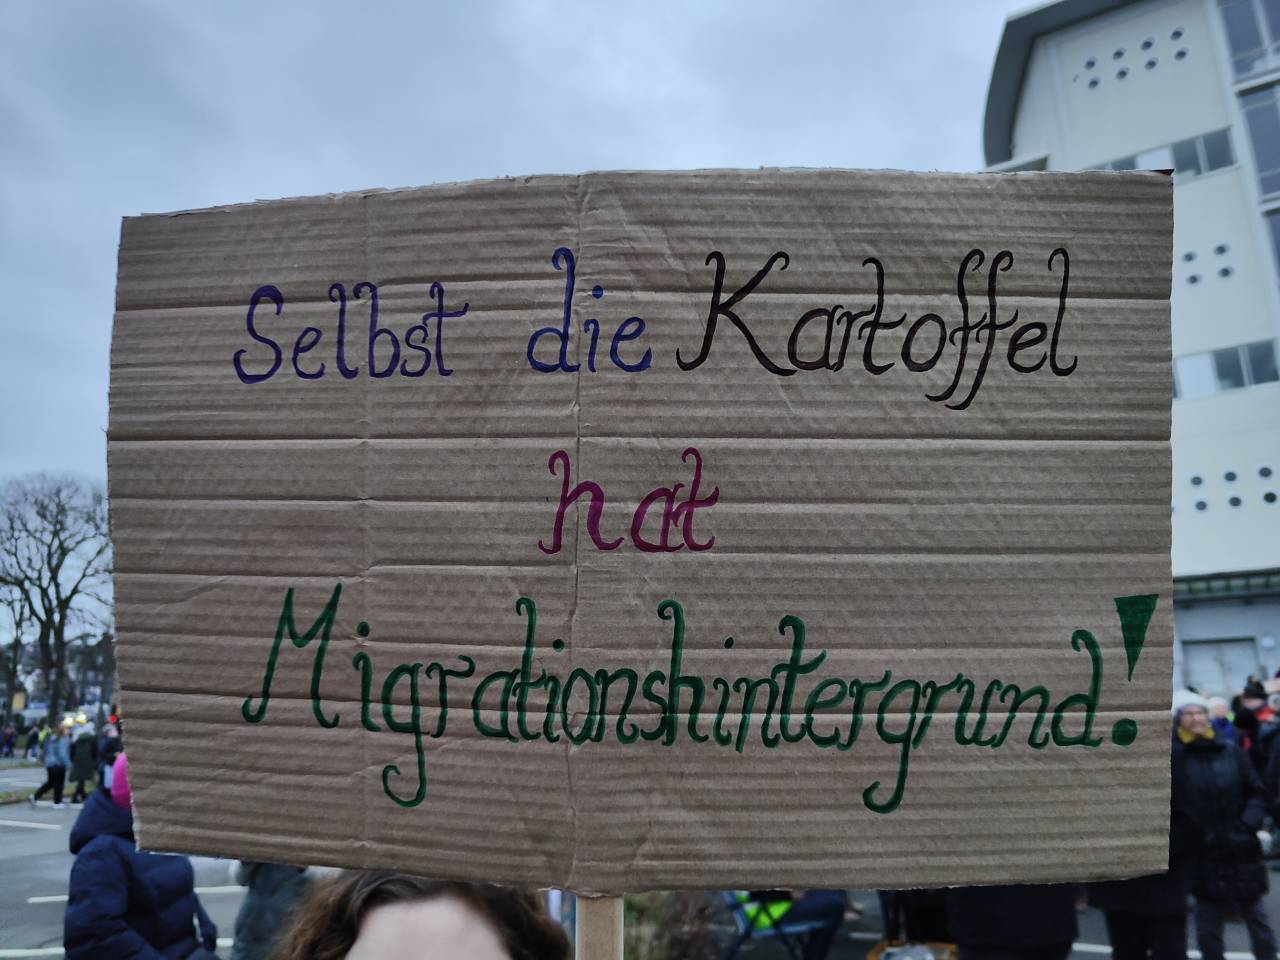 Selbst die Kartoffel
hat
Migrationshintergrund!